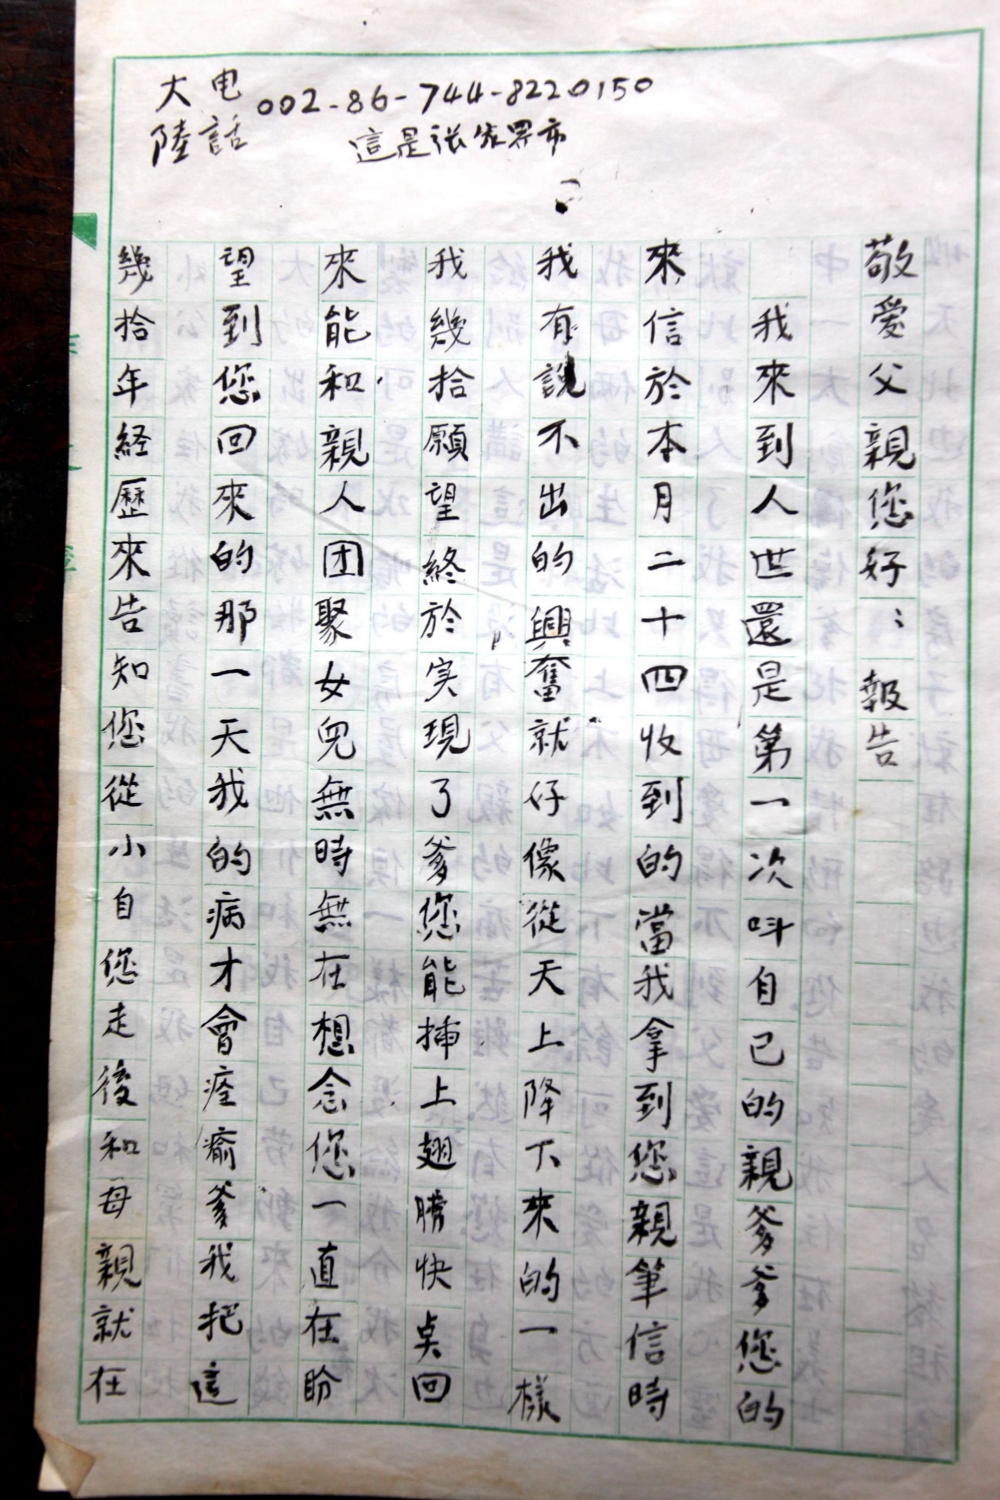 大陸电話 002-86-744-8220150
這是張家界市
敬愛父親您好：報告
我來到人世還是第一次叫自己的親爹爹您的
來信於本月二十四收到的當我拿到您親筆信時
我有說不出的興奮就好像從天上降下來的一樣
我幾拾願望終於实現了爹您能挿上翅膀快点回
來能和親人团聚女兒無時無在想念您一直在盼
望到您回來的那一天我的病才會痊瘉爹我把這
幾拾年経歷來告知您從小自您走後和母親就在